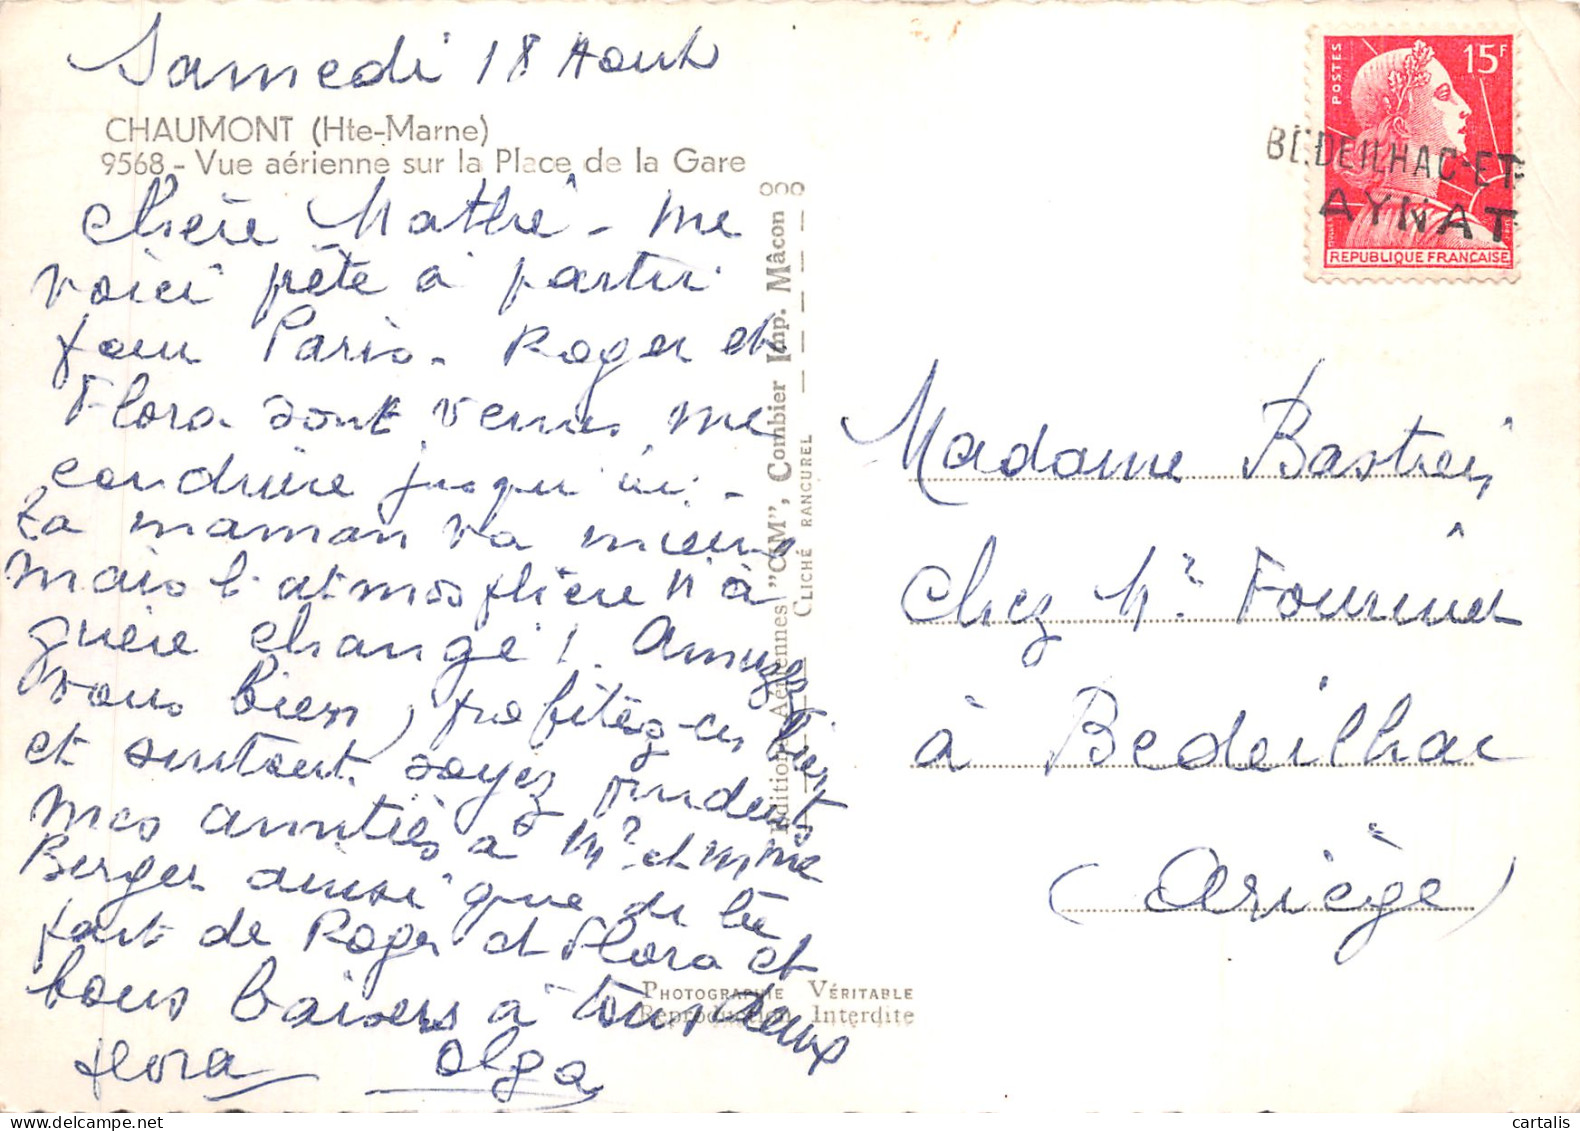 Samedi 18 Aout
CHAUMONT (Hte-Marne)
9568 - Vue aérienne sur la Place de la Gare
Chère Mathé - me
voici prête à partir
pour Paris - Roger et
Flora sont venus me
conduire jusqu'ici -
Ta maman va mieux
mais l'atmosphère n'à
guère changé ! Amusez
vous bien, profitez-en bien
et surtout soyez prudents
mes amitiés à Mr et Mme
Berger ainsi que de la
part de Roger et Flora et
bons baisers à tous deux
flora Olga
Editions Aériennes "CIM", Combier Imp. Mâcon
CLICHÉ RANCUREL
PHOTOGRAPHIE VÉRITABLE
Reproduction Interdite
POSTES 15F
REPUBLIQUE FRANÇAISE
BEDEILHAC-ET-
AYNAT
Madame
Chez Mr Fournier
à Bedeilhac
(Ariège)
cartalis
delcampe.net